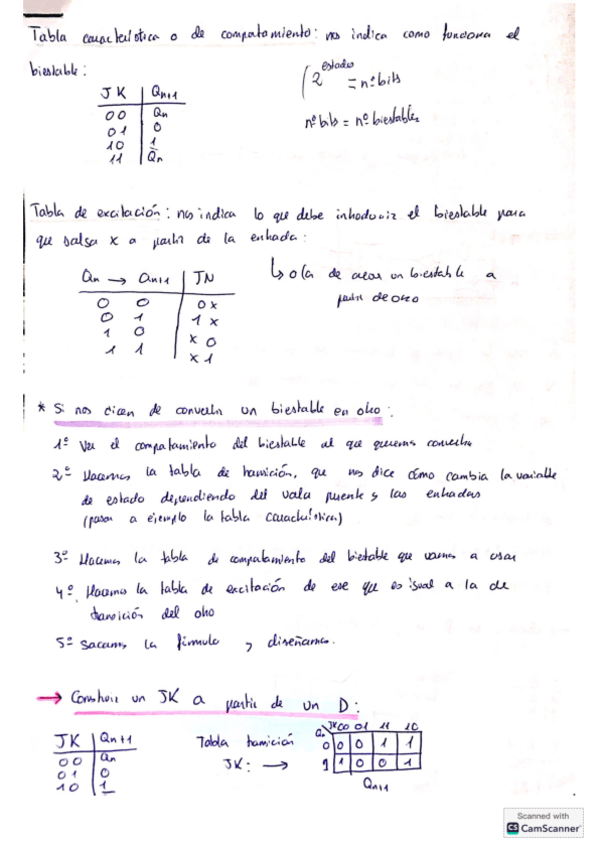 Tabla característica o de comportamiento: nos indica como funciona el
biestable:
JK | Qn+1
00 | Qn
01 | 0
10 | 1
11 | Q̅n
(2^estados = nºbits
nºbits = nºbiestables
Tabla de excitación: nos indica lo que debe introducir el biestable para
que salga x a partir de la entrada:
Qn → Qn+1 | JN
0 0 | 0x
0 1 | 1x
1 0 | x0
1 1 | x1
↳ de crear un biestable a
partir de otro
* Si nos dicen de convertir un biestable en otro:
1º Ver el comportamiento del biestable al que queremos convertir
2º Hacemos la tabla de transición, que nos dice cómo cambia la variable
de estado dependiendo del valor presente y las entradas
(pasar a ejemplo la tabla característica)
3º Hacemos la tabla de comportamiento del biestable que vamos a usar
4º Hacemos la tabla de excitación de ese que es igual a la de
transición del otro
5º Sacamos la fórmula y diseñamos.
→ Construir un JK a partir de un D:
JK | Qn+1
00 | Qn
01 | 0
10 | 1
Tabla transición
JK: →
Qn JK 00 01 11 10
0 0 0 1 1
1 1 0 0 1
Qn+1
Scanned with
CS CamScanner